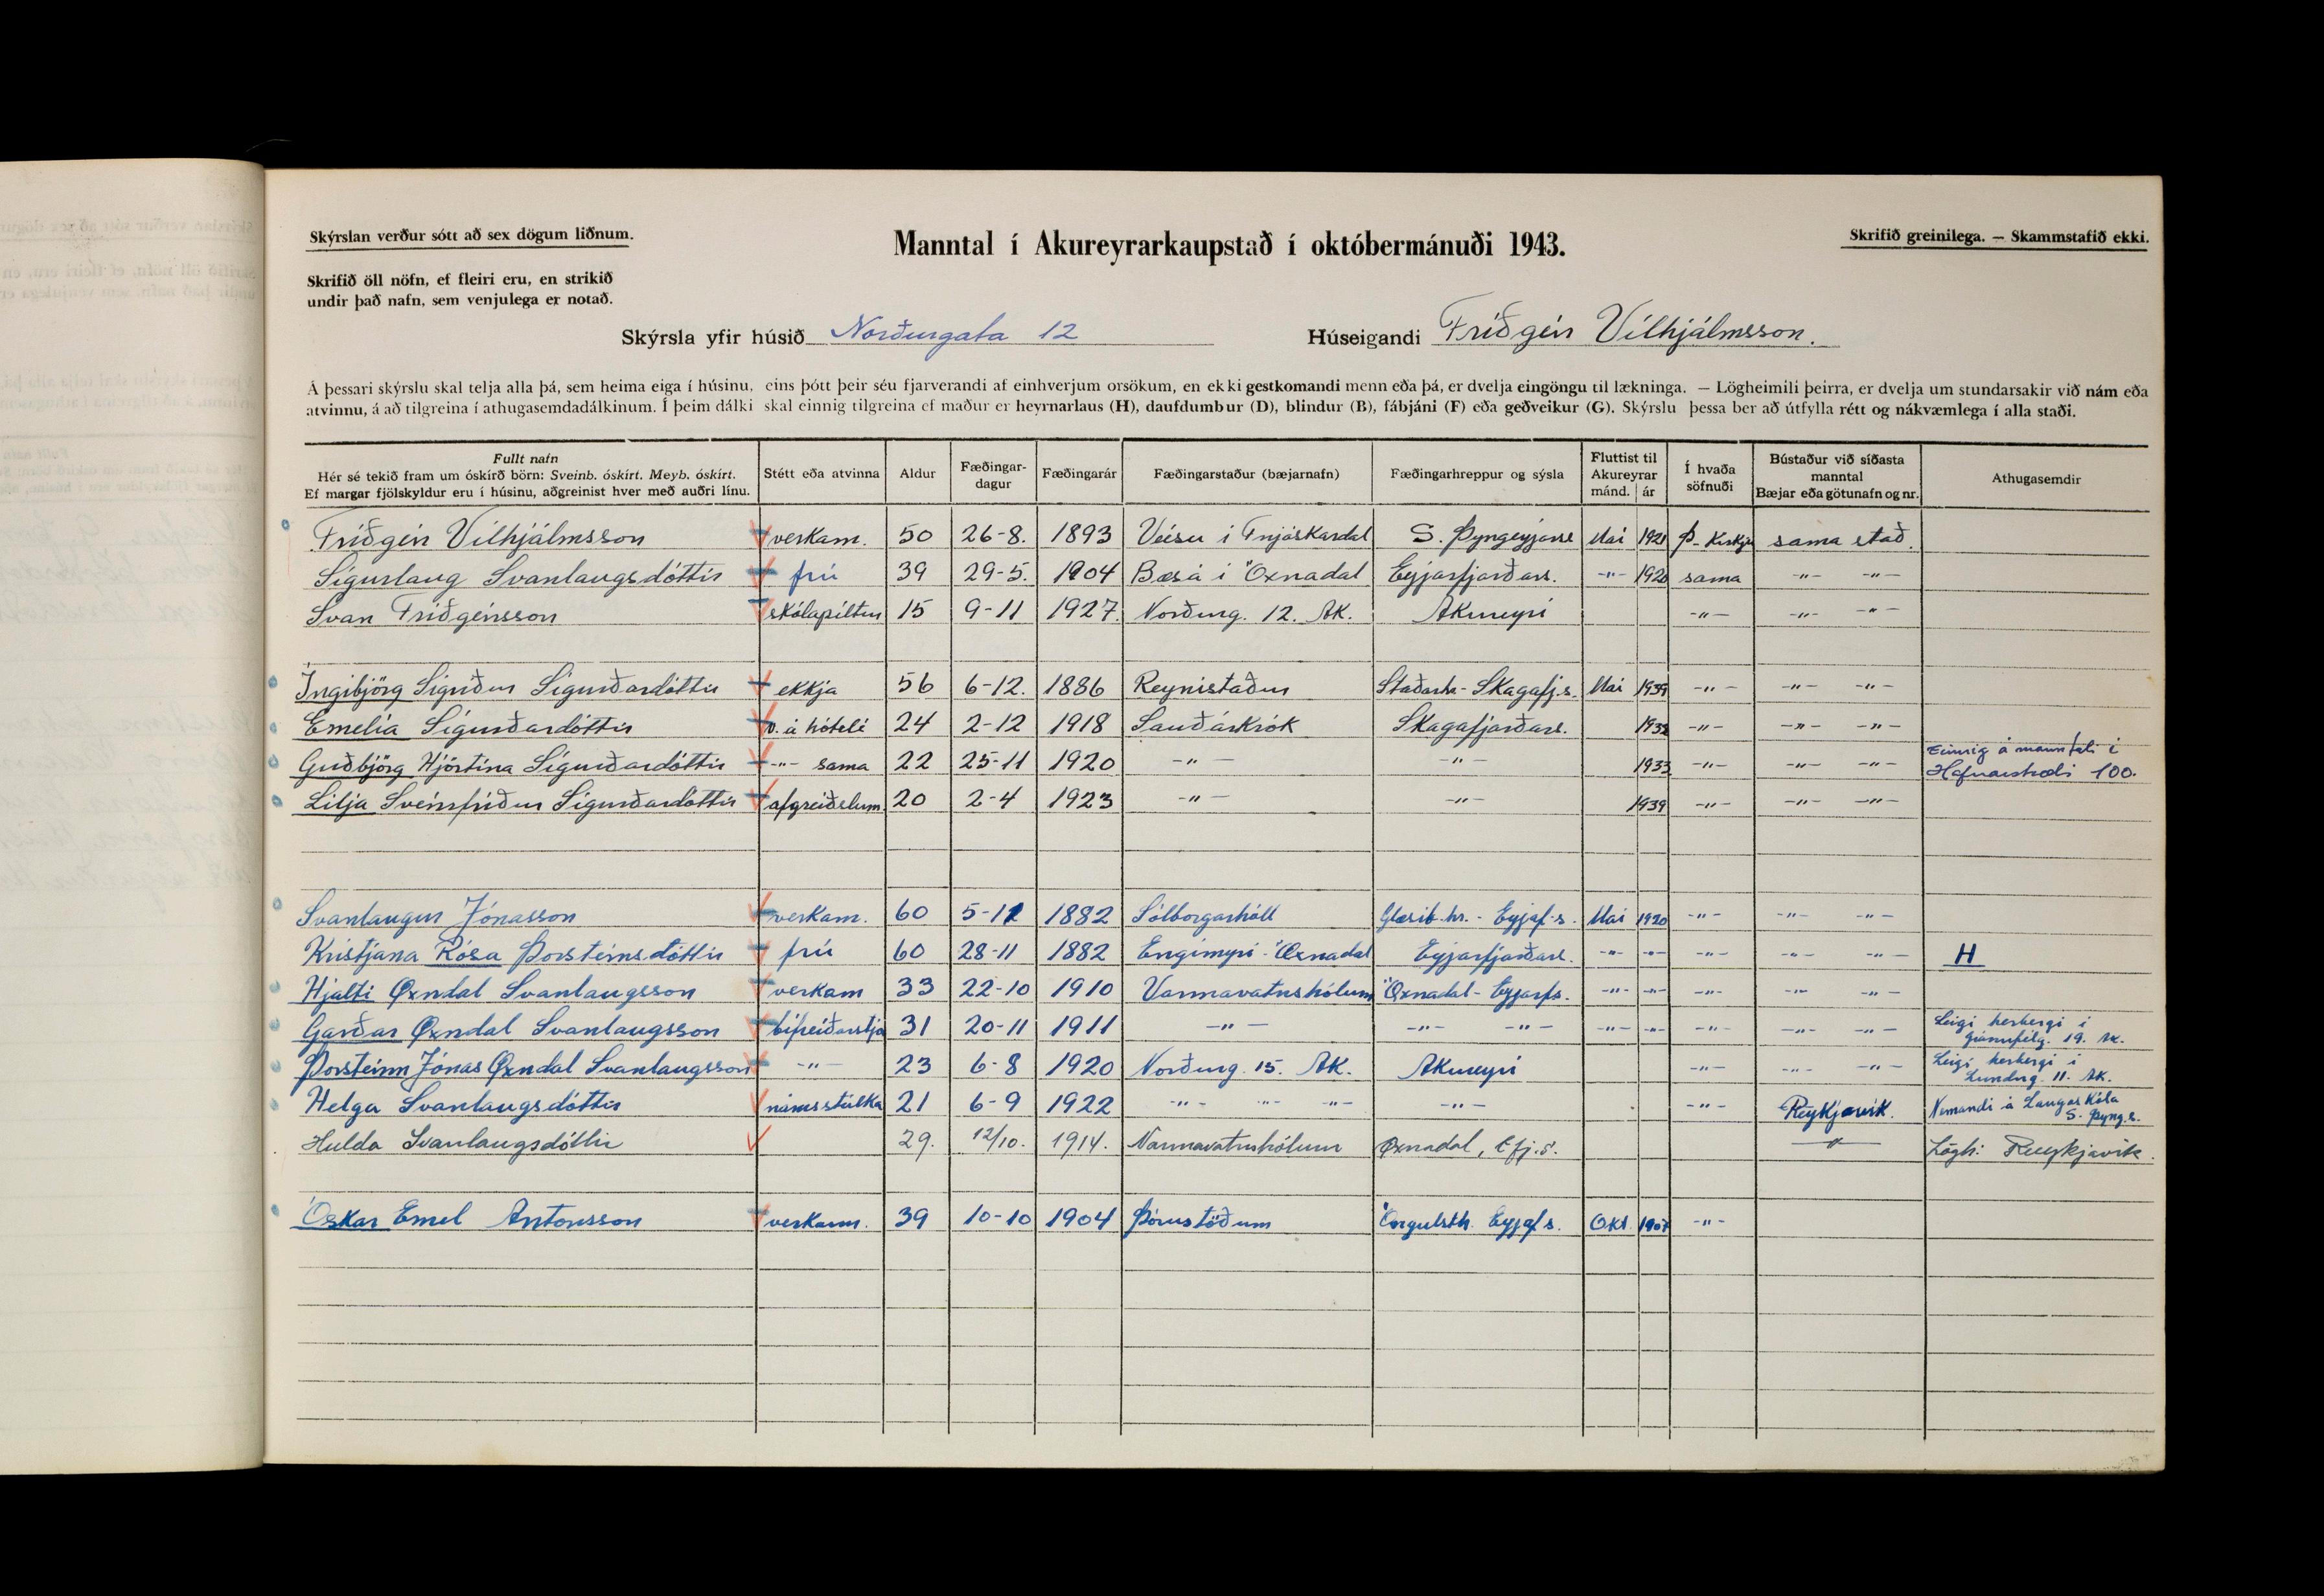 Skýrslan verður sótt að sex dögum liðnum.
Manntal í Akureyrarkaupstað í októbermánuði 1943.
Skrifið greinilega. — Skammstafið ekki.
Skrifið öll nöfn, ef fleiri eru, en strikið
undir það nafn, sem venjulega er notað.
Skýrsla yfir húsið Norðurgata 12 Húseigandi Friðgeir Vilhjálmsson.
Á þessari skýrslu skal telja alla þá, sem heima eiga í húsinu, eins þótt þeir séu fjarverandi af einhverjum orsökum, en ekki gestkomandi menn eða þá, er dvelja eingöngu til lækninga. — Lögheimili þeirra, er dvelja um stundarsakir við nám eða
atvinnu, á að tilgreina í athugasemdadálkinum. Í þeim dálki skal einnig tilgreina ef maður er heyrnarlaus (H), daufdumbur (D), blindur (B), fábjáni (F) eða geðveikur (G). Skýrslu þessa ber að útfylla rétt og nákvæmlega í alla staði.
Fullt nafn
Hér sé tekið fram um óskírð börn: Sveinb. óskírt. Meyb. óskírt.
Ef margar fjölskyldur eru í húsinu, aðgreinist hver með auðri línu.
Stétt eða atvinna
Aldur
Fæðingar-
dagur
Fæðingarár
Fæðingarstaður (bæjarnafn)
Fæðingarhreppur og sýsla
Fluttist til
Akureyrar
mánd. ár
Í hvaða
söfnuði
Bústaður við síðasta
manntal
Bæjar eða götunafn og nr.
Athugasemdir
Friðgeir Vilhjálmsson verkam. 50 26-8. 1893 Veisu í Fnjóskardal S. Þyngeyjarse Mai 1921 Þ-Kirkju sama stað.
Sigurlaug Svanlaugsdóttir frú 39 29-5. 1904 Bæsá í Öxnadal Eyjarfjarðars. -"- 1920 sama -"- -"-
Svan Friðgeirsson skólapiltur 15 9-11 1927. Norðurg. 12. AK. Akureyri -"- -"- -"-
Ingibjörg Sigríður Sigurðardóttir ekkja 56 6-12. 1886 Reynistaður Staðarhr- Skagafj.s. Mai 1939 -"- -"- -"-
Emelía Sigurðardóttir v. á hóteli 24 2-12 1918 Sauðárkrók Skagafjarðars. 1932 -"- -"- -"-
Guðbjörg Hjörtína Sigurðardóttir -"- sama 22 25-11 1920 -"- -"- 1933 -"- -"- -"- Einnig á manntali í
Hafnarstræti 100.
Lilja Sveinfríður Sigurðardóttir afgreiðslum. 20 2-4 1923 -"- -"- 1939 -"- -"- -"-
Svanlaugur Jónasson verkam. 60 5-11 1882 Sólborgarhóll Glæsib. hr. - Eyjaf.s. Mai 1920 -"- -"- -"-
Kristjana Rósa Þorsteinsdóttir frú 60 28-11 1882 Engimýri - Öxnadal Eyjarfjarðars. -"- -"- -"- -"- -"- H
Hjalti Öxndal Svanlaugsson verkam 33 22-10 1910 Varmavatnshólum Öxnadal - Eyjarfs. -"- -"- -"- -"- -"-
Garðar Öxndal Svanlaugsson bifreiðarstjó 31 20-11 1911 -"- -"- -"- -"- -"- -"- -"- -"- Leigi herbergi í
Gránufélg. 19. Ak.
Þorsteinn Jónas Öxndal Svanlaugsson -"- 23 6-8 1920 Norðurg. 15. AK. Akureyri -"- -"- -"- Leigi herbergi í
Lundrg. 11. AK.
Helga Svanlaugsdóttir námsstúlka 21 6-9 1922 -"- -"- -"- -"- -"- Reykjavík. Nemandi á Laugaskóla
S. Þyng.s.
Hulda Svanlaugsdóttir 29. 12/10. 1914. Varmavatnshólum Öxnadal, Efj.s. -"- Lögh: Reykjavík.
Óskar Emel Antonsson verkam. 39 10-10 1904 Þórustöðum Öngulsth. Eyjafs. Okt. 1907 -"-